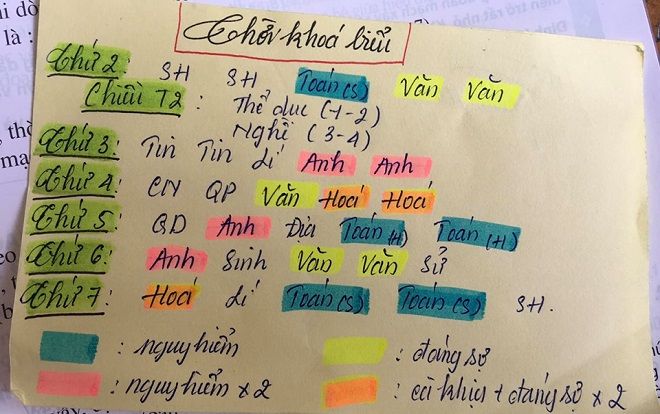 Thời khoá biểu
Thứ 2: SH SH Toán(S) Văn Văn
Chiều T2: Thể dục (1-2)
Nghề (3-4)
Thứ 3: Tin Tin Lí Anh Anh
Thứ 4: CN QP Văn Hoá Hoá
Thứ 5: QD Anh Địa Toán(H) Toán(H)
Thứ 6: Anh Sinh Văn Văn Sử
Thứ 7: Hoá Lí Toán(S) Toán(S) SH.
: nguy hiểm : đáng sợ
: nguy hiểm x 2 : cà khịa + đáng sợ x 2